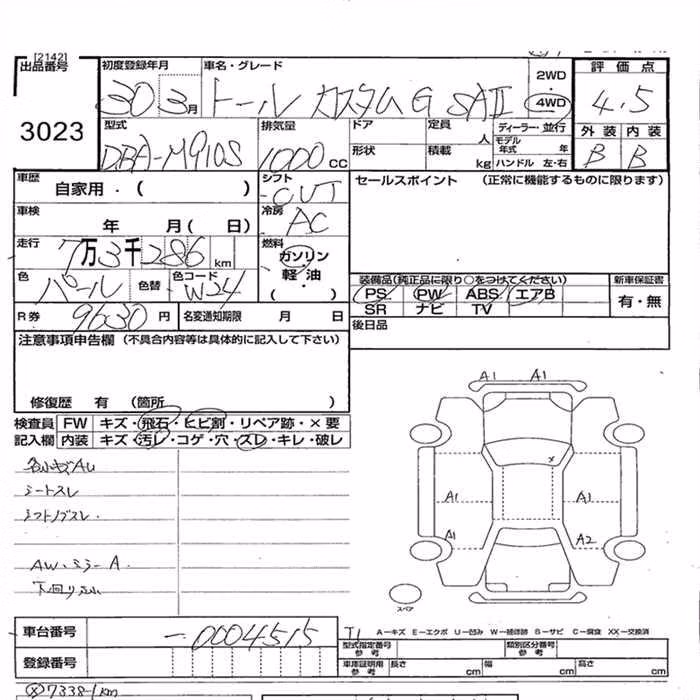 [2142]
出品番号
3023
初度登録年月 車名・グレード
30 3月 トール カスタム G SAⅡ
2WD
4WD
評価点
4.5
外装 内装
B B
型式 排気量 ドア 定員 人 ディーラー・並行
DBA-M910S 1000cc
形状 積載 kg
モデル年式 年
ハンドル 左・右
車歴 自家用・( )
シフト CVT
セールスポイント (正常に機能するものに限ります)
車検 年 月( 日)
冷房 AC
走行 7万3千286km
燃料 ガソリン・軽・油 ( ・ )
色 パール 色替 色コード W24
装備品(純正品に限り○をつけてください) 新車保証書
PS PW ABS エアB 有・無
SR ナビ TV
R券 9630円 名変通知期限 月 日
後日品
注意事項申告欄 (不具合内容等は具体的に記入して下さい)
修復歴 有 (箇所 )
検査員 FW キズ・飛石・ヒビ割・リペア跡・×要
記入欄 内装 キズ・汚レ・コゲ・穴・スレ・キレ・破レ
シートスレ
シフトノブスレ
AW・ミラーA
A1 A1
A1 A1
A1 A2
スペア
車台番号 -0004515
A-キズ E-エクボ U-凹み W-補修跡 B-サビ C-腐食 XX-交換済
型式指定番号 参考 類別区分番号 参考
登録番号
車庫証明用 参考 長さ cm 幅 cm 高さ cm
73381km